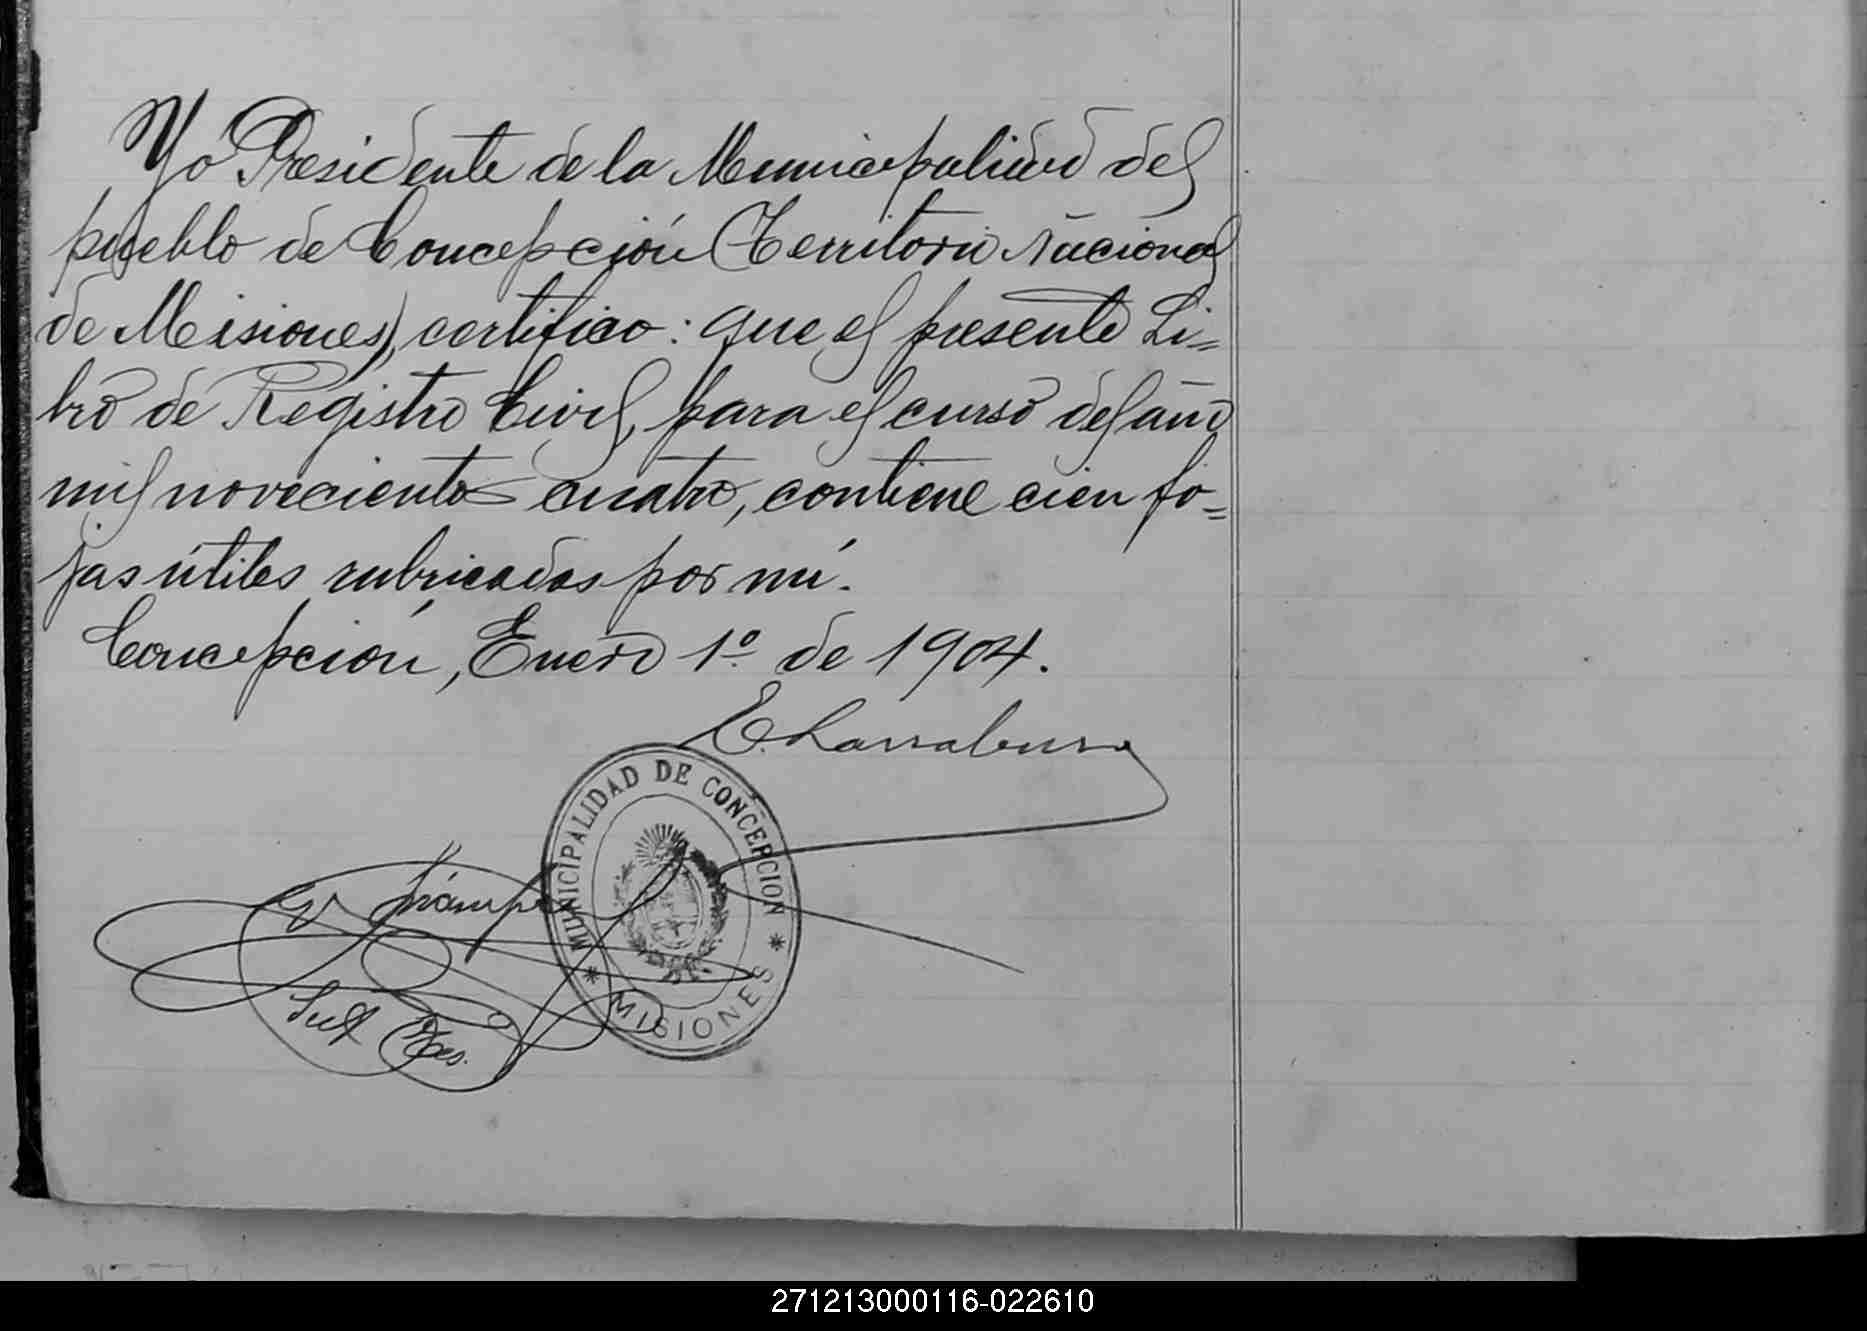 Yo Presidente de la Municipalidad del
pueblo de Concepción (Territorio Nacional
de Misiones), certifico: que el presente Li=
bro de Registro Civil, para el curso del año
mil novecientos cuatro, contiene cien fo=
jas útiles rubricadas por mí.
Concepción, Enero 1º de 1904.
E. Larraburu
MUNICIPALIDAD DE CONCEPCION
* MISIONES *
271213000116-022610